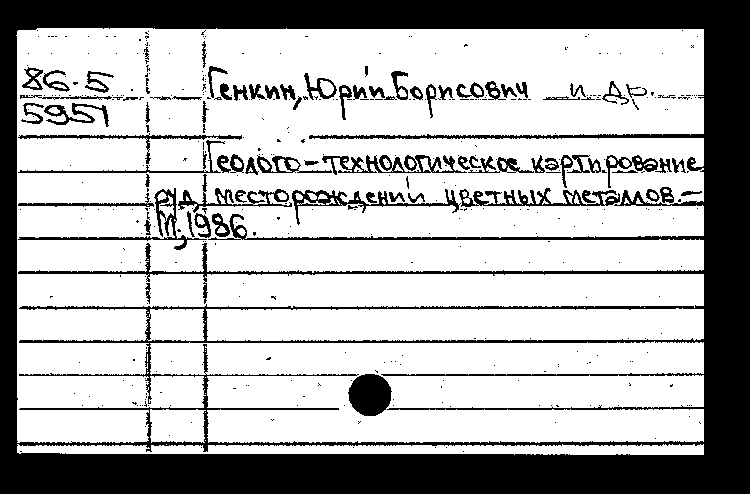 86-5
5951
Генкин, Юрий Борисович и др.
Геолого-технологическое картирование
руд месторождений цветных металлов.-
М., 1986.